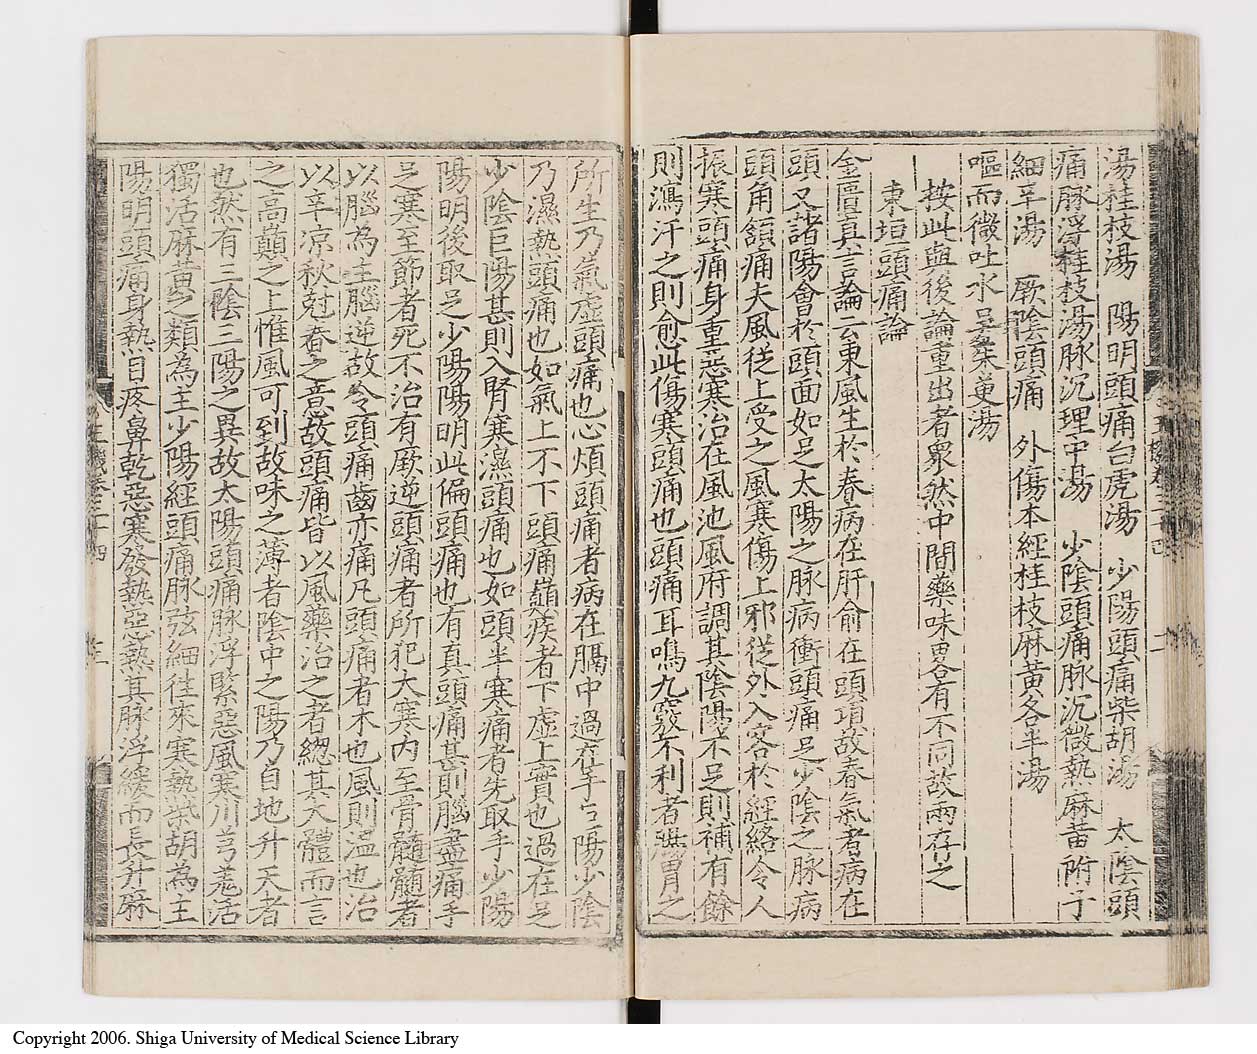 湯桂枝湯　陽明頭痛白虎湯　少陽頭痛柴胡湯　太陰頭
痛脉浮桂枝湯脉沉理中湯　少陰頭痛脉沉微熱麻黄附子
細辛湯　厥陰頭痛　外傷本經桂枝麻黄各半湯
嘔而微吐水吴茱萸湯
按此與後論重出者眾然中間藥味畧有不同故兩存之
東垣頭痛論
金匱真言論云東風生於春病在肝俞在頭項故春氣者病在
頭又諸陽會於頭面如足太陽之脉病衝頭痛足少陰之脉病
頭角頷痛夫風從上受之風寒傷上邪從外入客於經絡令人
振寒頭痛身重惡寒治在風池風府調其陰陽不足則補有餘
則瀉汗之則愈此傷寒頭痛也頭痛耳鳴九竅不利者腸胃之
所生乃氣虛頭痛也心煩頭痛者病在膈中過在手巨陽少陰
乃濕熱頭痛也如氣上不下頭痛巔疾者下虛上實也過在足
少陰巨陽甚則入腎寒濕頭痛也如頭半寒痛者先取手少陽
陽明後取足少陽陽明此偏頭痛也有真頭痛甚則腦盡痛手
足寒至節者死不治有厥逆頭痛者所犯大寒内至骨髓髓者
以腦為主腦逆故令頭痛齒亦痛凡頭痛者木也風則溫也治
以辛凉秋尅春之意故頭痛皆以風藥治之者緫其大體而言
之高巔之上惟風可到故味之薄者陰中之陽乃自地升天者
也然有三陰三陽之異故太陽頭痛脉浮緊惡風寒川芎羗活
獨活麻黄之類為主少陽經頭痛脉弦細往來寒熱柴胡為主
陽明頭痛身熱目疼鼻乾惡寒發熱惡熱其脉浮緩而長升麻
Copyright 2006. Shiga University of Medical Science Library